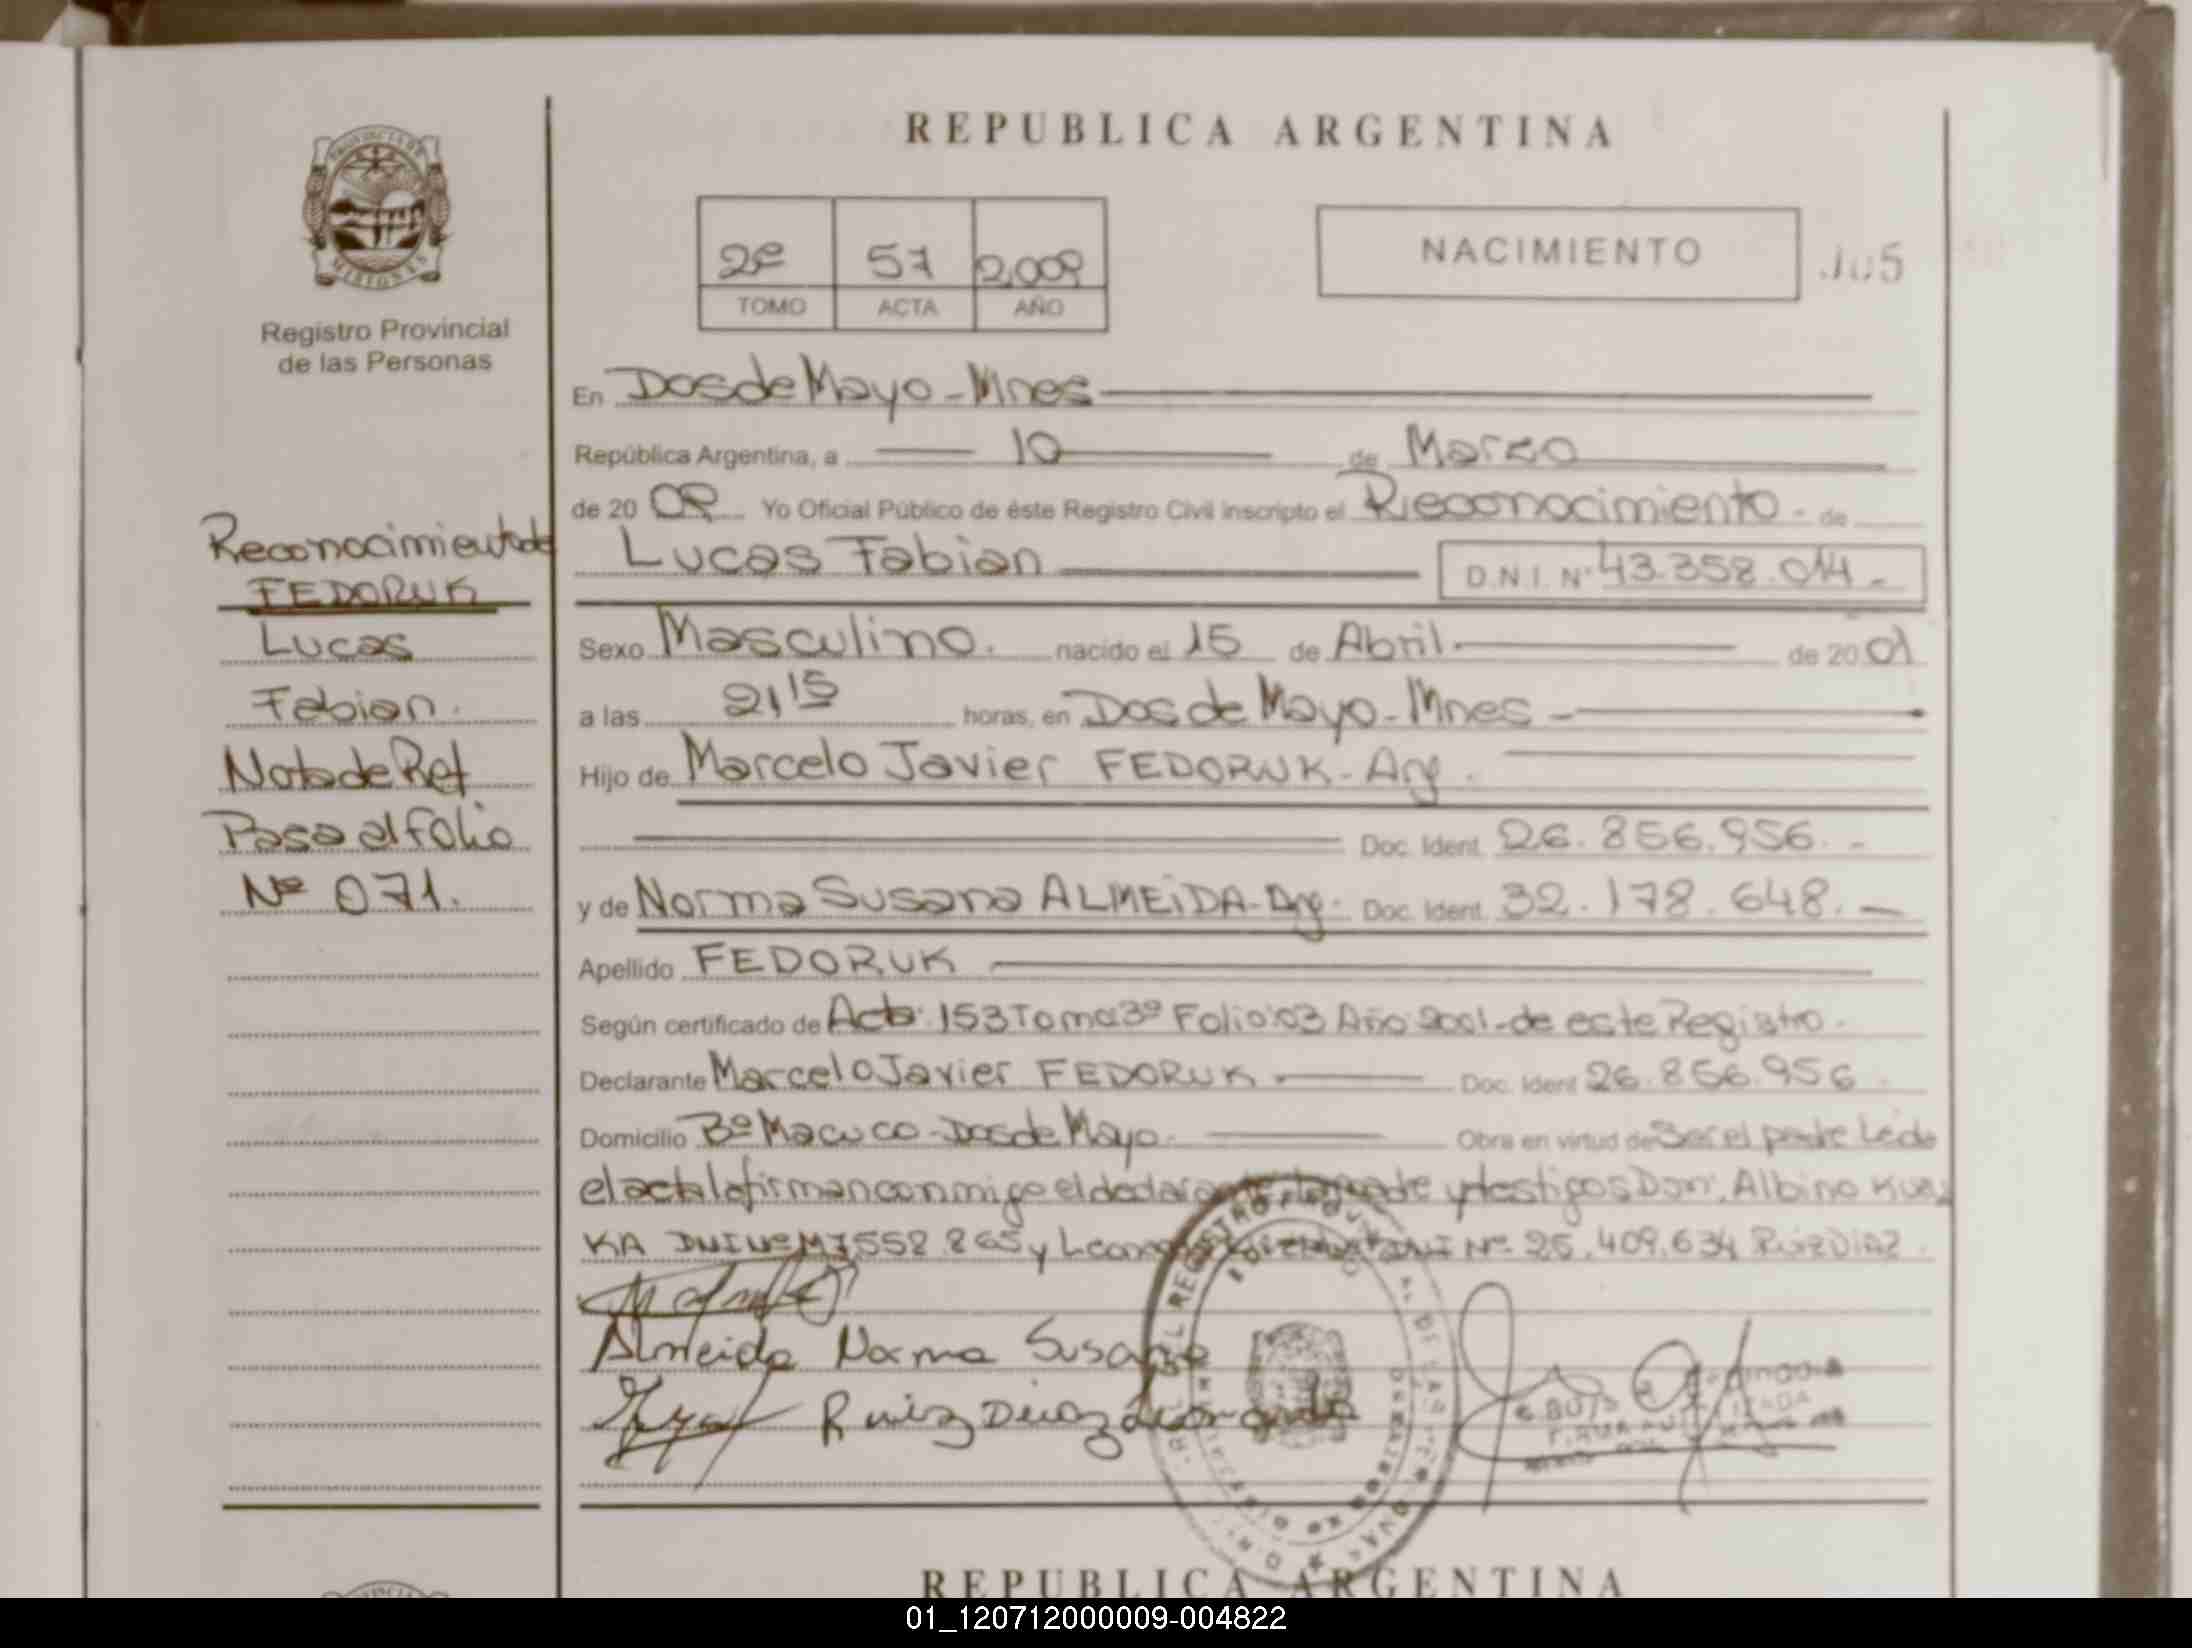 REPUBLICA ARGENTINA
PROVINCIA DE
MISIONES
Registro Provincial
de las Personas
2º 57 2,009
TOMO ACTA AÑO
NACIMIENTO
105
En Dos de Mayo - Mnes
República Argentina, a 10 de Marzo
de 20 09 Yo Oficial Público de éste Registro Civil inscripto el Reconocimiento - de
Lucas Fabian D.N.I. Nº 43.358.014 -
Sexo Masculino. nacido el 15 de Abril. de 20 01
a las 21 15 horas, en Dos de Mayo - Mnes -
Hijo de Marcelo Javier FEDORUK - Arg.
Doc. Ident. 26.856.956. -
y de Norma Susana ALMEIDA - Arg. Doc. Ident. 32.178.648. -
Apellido FEDORUK
Según certificado de Acta: 153 Tomo 3º Folio: 03 Año 2001 - de este Registro.
Declarante Marcelo Javier FEDORUK. Doc. Ident 26.856.956
Domicilio Bº Macuco - Dos de Mayo. Obra en virtud de Ser el padre Leida
el acta la firman conmigo el declarante la madre y testigos Don: Albino
KA DNI Nº M7558.865 y DNI Nº 25.409.634 Ruiz Diaz
Almeida Norma Susana
Ruiz Diaz Leonardo
Reconocimiento de
FEDORUK
Lucas
Fabian.
Nota de Ref
Pasa al folio
Nº 071.
REPUBLICA ARGENTINA
01_120712000009-004822